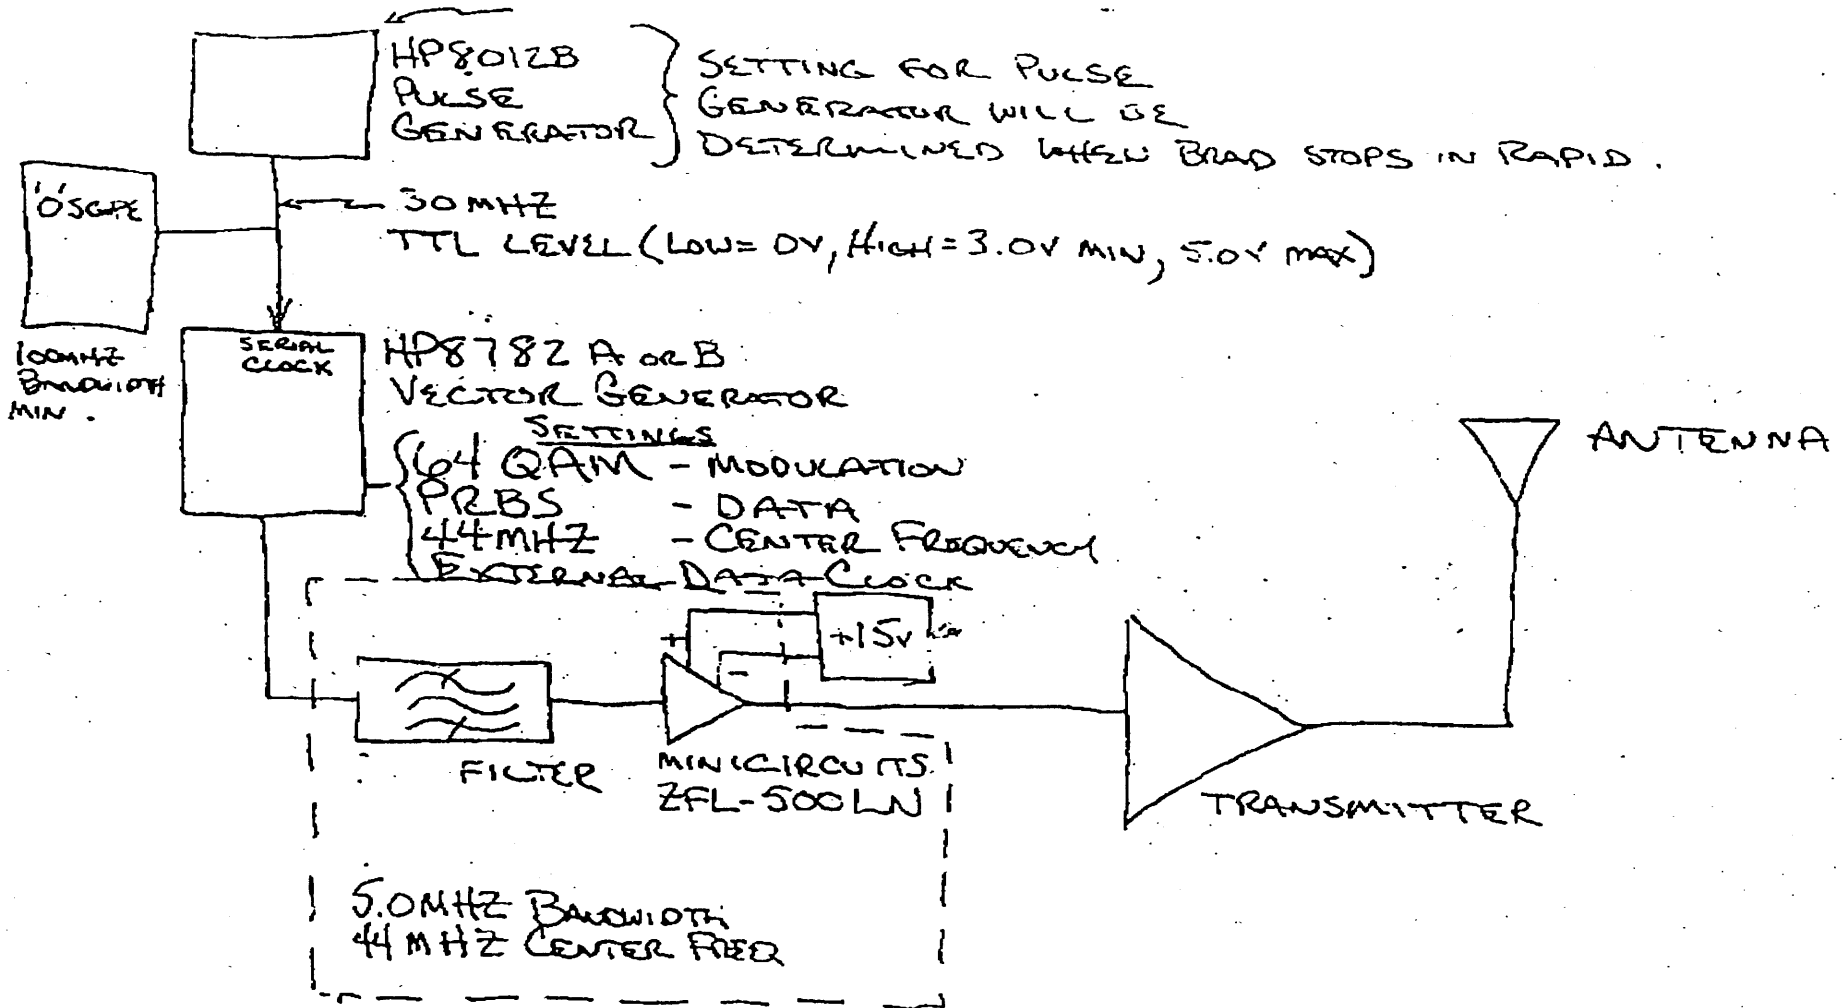 HP8012B
PULSE
GENERATOR
SETTING FOR PULSE
GENERATOR WILL BE
DETERMINED WHEN BRAD STOPS IN RAPID.
'O'SCOPE
30 MHZ
TTL LEVEL (LOW= 0V, HIGH = 3.0V MIN, 5.0V MAX)
100MHZ
BANDWIDTH
MIN.
SERIAL
CLOCK
HP8782 A OR B
VECTOR GENERATOR
SETTINGS
64 QAM - MODULATION
PRBS - DATA
44 MHZ - CENTER FREQUENCY
EXTERNAL DATA CLOCK
ANTENNA
+
+15V
-
FILTER
MINICIRCUITS
ZFL-500LN
TRANSMITTER
5.0MHZ BANDWIDTH
44 MHZ CENTER FREQ